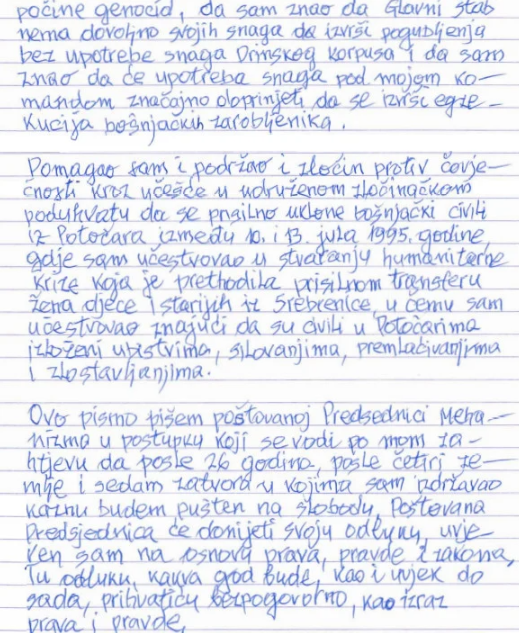 počine genocid, da sam znao da Glavni stab
nema dovoljno svojih snaga da izvrši pogubljenja
bez upotrebe snaga Drinskog korpusa i da sam
znao da će upotreba snaga pod mojom ko-
mandom značajno doprinjeti da se izvrši egze-
kucija bošnjačkih zarobljenika.
Pomagao sam i podržao i zločin protiv čovje-
čnosti kroz učešće u udruženom zločinačkom
poduhvatu da se prisilno uklone bošnjački civili
iz Potočara između 10. i 13. jula 1995. godine,
gdje sam učestvovao u stvaranju humanitarne
krize koja je prethodila prisilnom transferu
žena djece i starijih iz Srebrenice, u čemu sam
učestvovao znajući da su civili u Potočarima
izloženi ubistvima, silovanjima, premlaćivanjima
i zlostavljanjima.
Ovo pismo pišem poštovanoj Predsednici Meha-
nizma u postupku koji se vodi po mom za-
htjevu da posle 26 godina, posle četiri ze-
mlje i sedam zatvora u kojima sam izdržavao
kaznu budem pušten na slobodu. Poštovana
Predsjednica će donijeti svoju odluku, uvje-
ren sam na osnovu prava, pravde i zakona,
Tu odluku, kakva god bude, kao i uvjek do
sada, prihvatiću bezpogovorno, kao izraz
prava i pravde,